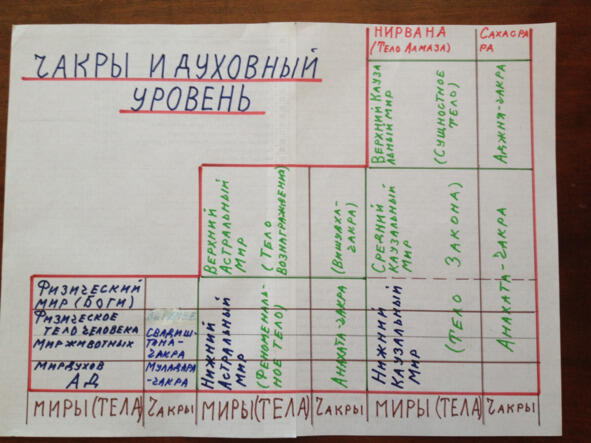 ЧАКРЫ И ДУХОВНЫЙ
УРОВЕНЬ
НИРВАНА
(ТЕЛО АЛМАЗА)
САХАСРА
РА
ВЕРХНИЙ КАУЗА
ЛЬНЫЙ МИР
(СУЩНОСТНОЕ
ТЕЛО)
АДЖНЯ-ЧАКРА
ВЕРХНИЙ
АСТРАЛЬНЫЙ
МИР
(ТЕЛО
ВОЗНАГРАЖДЕНИЯ)
(ВИШУДХА-
ЧАКРА)
СРЕДНИЙ
КАУЗАЛЬНЫЙ
МИР
(ТЕЛО ЗАКОНА)
АНАХАТА-ЧАКРА
ФИЗИЧЕСКИЙ
МИР (БОГИ)
ФИЗИЧЕСКОЕ
ТЕЛО ЧЕЛОВЕКА
МИР ЖИВОТНЫХ
МИР ДУХОВ
АД
СВАДИШ-
ТОНА-
ЧАКРА
МУЛАДАРА
-ЧАКРА
НИЖНИЙ
АСТРАЛЬНЫЙ
МИР
(ФЕНОМЕНАЛЬ-
НОЕ ТЕЛО)
АНАХАТА-ЧАКРА
НИЖНИЙ
КАУЗАЛЬНЫЙ
МИР
МИРЫ (ТЕЛА)
ЧАКРЫ
МИРЫ (ТЕЛА)
ЧАКРЫ
МИРЫ (ТЕЛА)
ЧАКРЫ